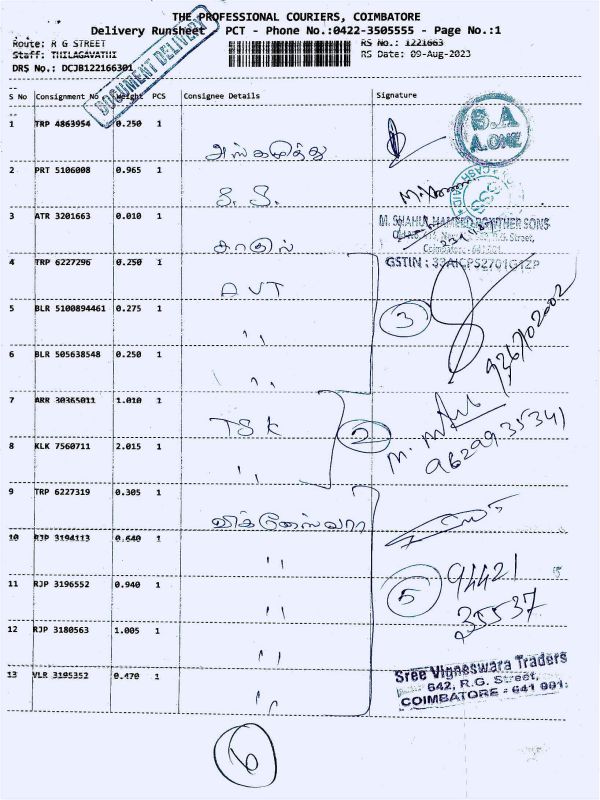 THE PROFESSIONAL COURIERS, COIMBATORE
Delivery Runsheet PCT - Phone No.:0422-3505555 - Page No.:1
Route: R G STREET RS No.: 1221663
Staff: THILAGAVATHI RS Date: 09-Aug-2023
DRS No.: DCJB122166301
DOCUMENT DELIVERY
S No Consignment No Weight PCS Consignee Details Signature
1 TRP 4863954 0.250 1
B.A
A.ONE
2 PRT 5106008 0.965 1 S. S.
3 ATR 3201663 0.010 1
M. SHAHUL HAMEED ROWTHER SONS
Street,
Coimbatore - 641 001.
GSTIN : 33AICPS2701G1ZP
4 TRP 6227296 0.250 1 AVT
5 BLR 5100894461 0.275 1 ,, 3
6 BLR 505638548 0.250 1 ,,
7 ARR 30365011 1.010 1 TSK
8 KLK 7560711 2.015 1 ,, 2
96299 35341
9 TRP 6227319 0.305 1 விக்னேஸ்வரா
10 RJP 3194113 0.640 1 ,,
11 RJP 3196552 0.940 1 ,, 5
94421
35537
12 RJP 3180563 1.005 1 ,,
13 VLR 3195352 0.470 1 ,,
Sree Vigneswara Traders
642, R.G. Street,
COIMBATORE - 641 001.
6